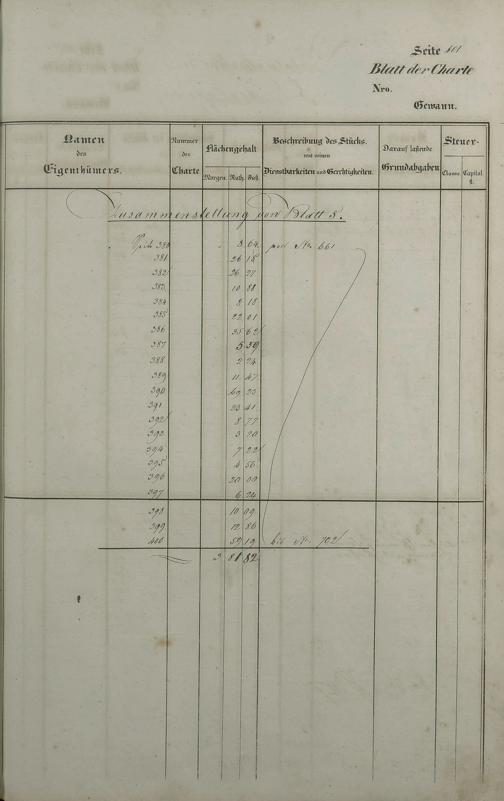 Seite 401
Blatt der Charte
Nro.
Gewann.
Namen des Eigenthümers.
Nummer der Charte
Flächengehalt
Morgen. Ruth. Fuß.
Beschreibung des Stücks. mit seinen Dienstbarkeiten und Gerechtigkeiten.
Darauf lastende Grundabgaben
Steuer-
Classe. Capital.
Zusammenstellung von Blatt 5.
Seite 380 3 64 No. 661
381 26 18
382 26 27
383 10 81
384 8 18
385 22 01
386 35 62
387 5 59
388 2 24
389 11 47
390 49 23
391 23 41
392 8 77
393 3 20
394 7 22
395 4 56
396 20 09
397 6 24
398 10 09
399 12 86
400 52 19 bis No. 702
3 81 82